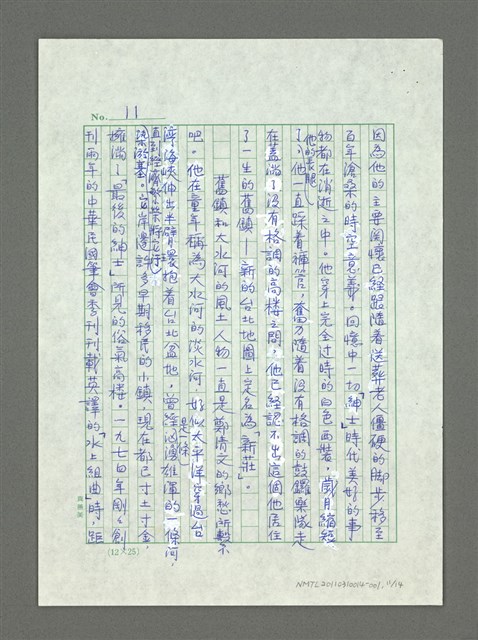 No. 11
因為他的主要關懷已經跟隨着送葬老人僵硬的腳步移至
百年滄桑的時空意義。回憶中一切「紳士」時代美好的事
物都在消逝之中。他穿上完全过時的白色西裝，歲月縮短
了他的長腿，他一直踩着褲管，奮力隨着沒有格調的鼓鑼樂隊走
在蓋滿了沒有格調的高樓之間，他已經認不出這個他居住
了一生的舊鎮——新的台北地圖上定名為「新莊」。
舊鎮和大水河的風土人物一直是鄭清文的鄉愁所繫
吧。他在童年稱為大水河的淡水河，好似是太平洋穿過台
灣海峽伸出半臂環抱着台北盆地，曾經是條洶湧雄渾的一條河，
梁於基。兩岸邊許多早期移民的小鎮，現在都已寸土寸金，
擁滿了「最後的紳士」所見的俗氣高樓。一九七四年剛剛創
刊兩年的中華民國筆會季刊刊載英譯的「水上組曲」時，距
(12×25)
NMTL20110310014-001, 11/14